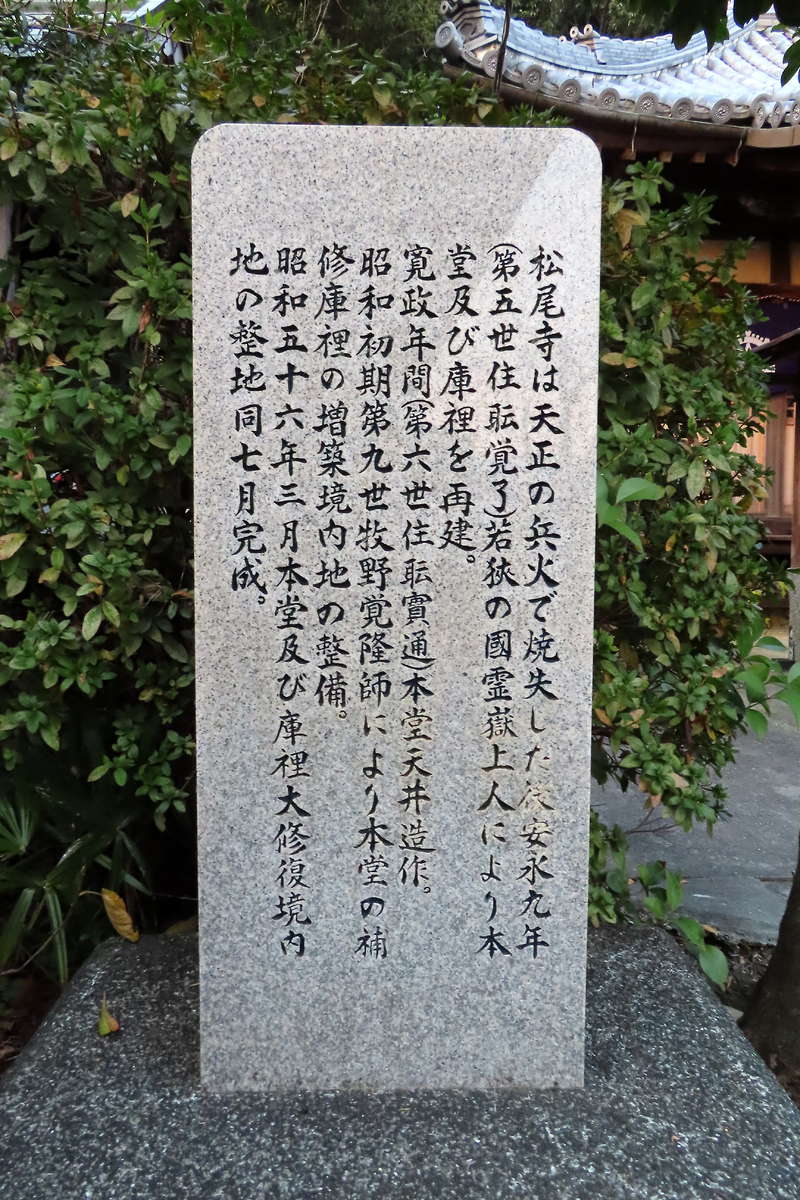 松尾寺は天正の兵火で焼失した後安永九年
(第五世住職覚了)若狭の國霊嶽上人により本
堂及び庫裡を再建。
寛政年間(第六世住職實通)本堂天井造作。
昭和初期第九世牧野覚隆師により本堂の補
修庫裡の増築境内地の整備。
昭和五十六年三月本堂及び庫裡大修復境内
地の整地同七月完成。